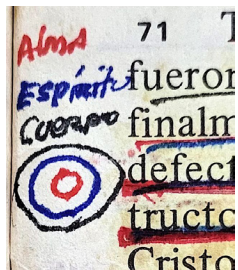 71
Alma
Espíritu
Cuerpo
fueron
finalm
defect
tructo
Cristo